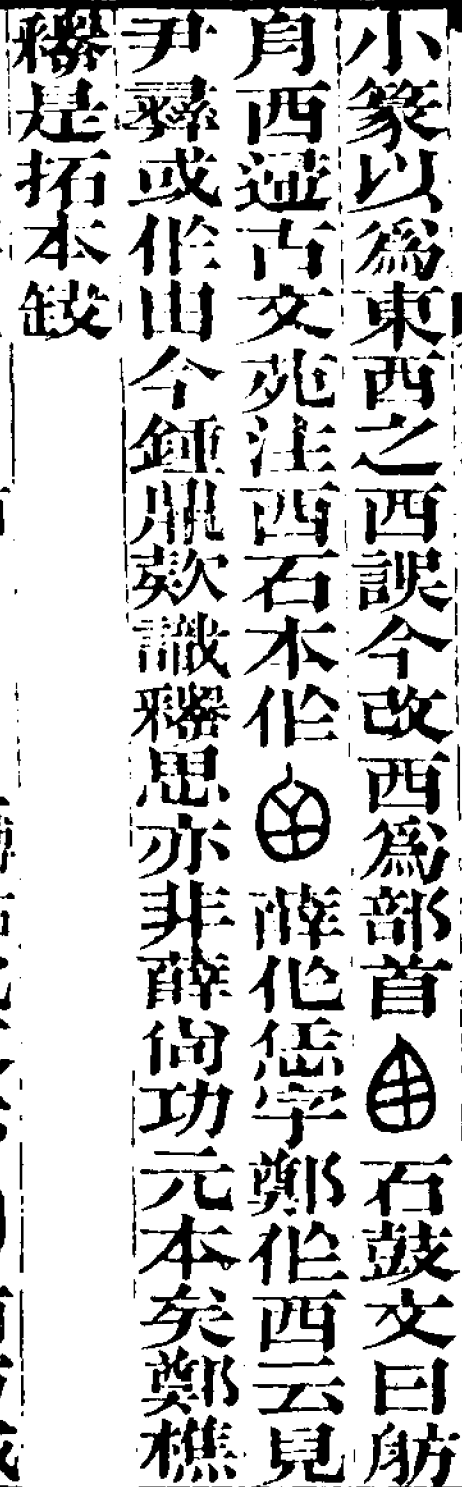 小篆以爲東西之西誤今改西爲部首石鼓文曰舫
自西逮古文苑注西石本作薛作恁字鄭作西云見
尹彝或作由今鍾鼎款識釋思亦非薛尚功元本矣鄭樵
釋是拓本鈌